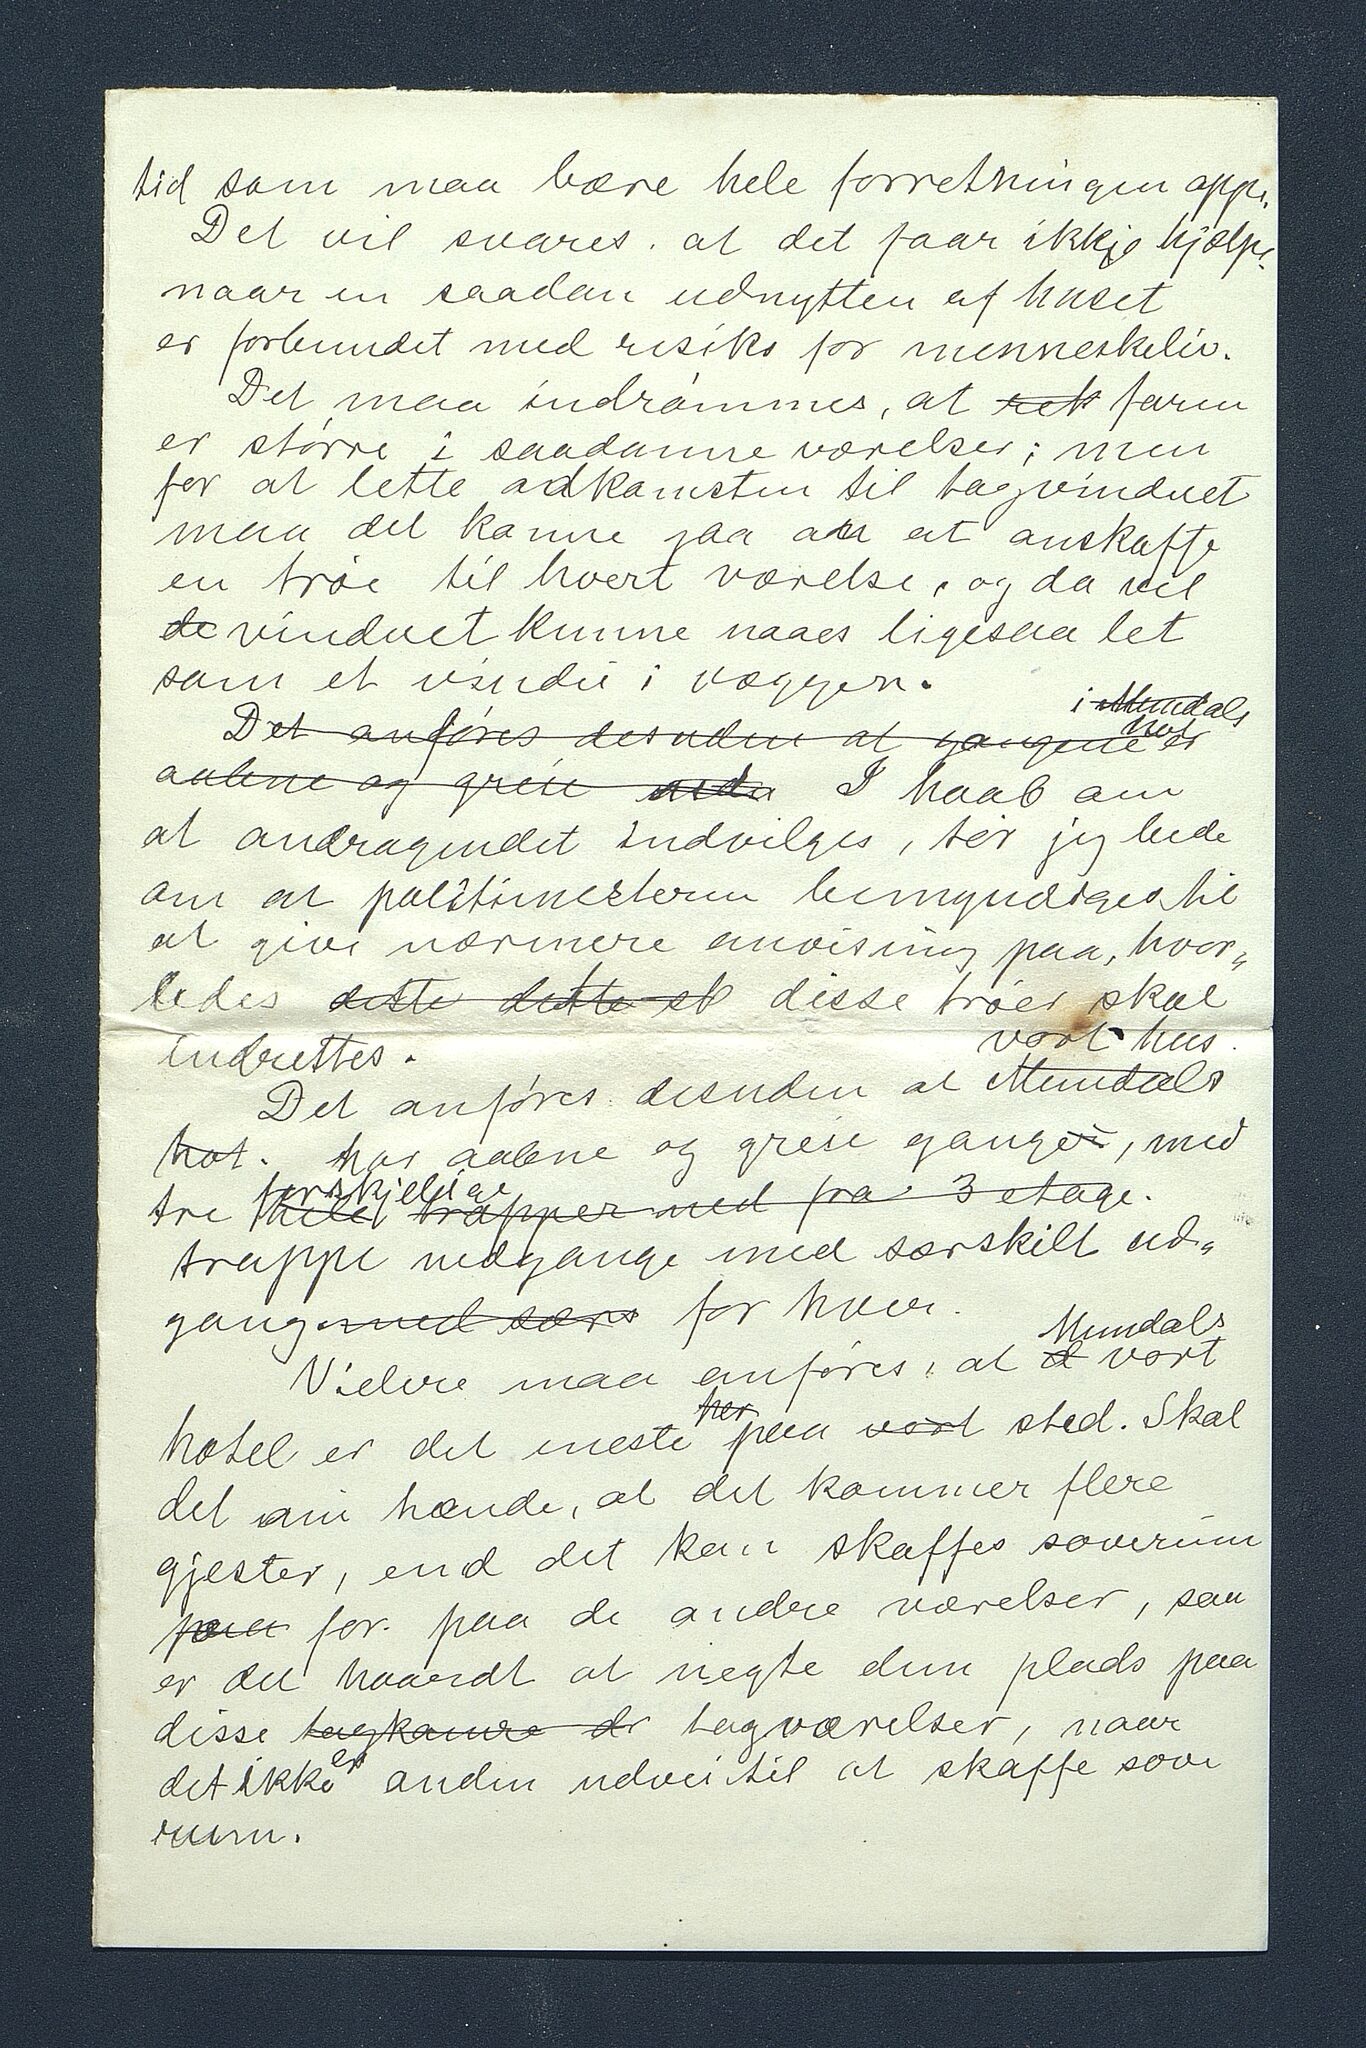 tid som maa bære hele forretningen oppe.
Det vil svares. at det faar ikkje hjælpe.
naar en saadan udnytten af huset
er forbundet med risiko for menneskeliv.
Det maa indrømmes, at rek faren
er større i saadanne værelser; men
for at lette adkomsten til tagvinduet
maa det kunne gaa an at anskaffe
en trøe til hvert værelse, og da vil
de vinduet kunne naaes ligesaa let
som et vindu i væggen.
i Mundals
hot
Det anføres desuden at gangene er
aabne og greie I haab om
at andragendet indvilges, tør jeg bede
om at politimesteren bemyndiges til
at give nærmere anvisning paa, hvor„
ledes dette dette sk disse trøer skal
indrettes.
vort hus.
Det anføres desuden at Mundals
hot. har aabne og greie gange, med
forskjelige
tre trapper ned fra 3 etage.
trappe nedgange med særskilt ud„
gang med særs for hver.
Mundals
Videre maa anføres, at d vort
her
hotel er det eneste paa vort sted. Skal
det om hænde, at det kommer flere
gjester, end det kan skaffes soverum
paa for. paa de andre værelser, saa
er det haardt at negte dem plads paa
disse tagkamre dr tagværelser, naar
er
det ikke anden udvei til at skaffe sove
rum.